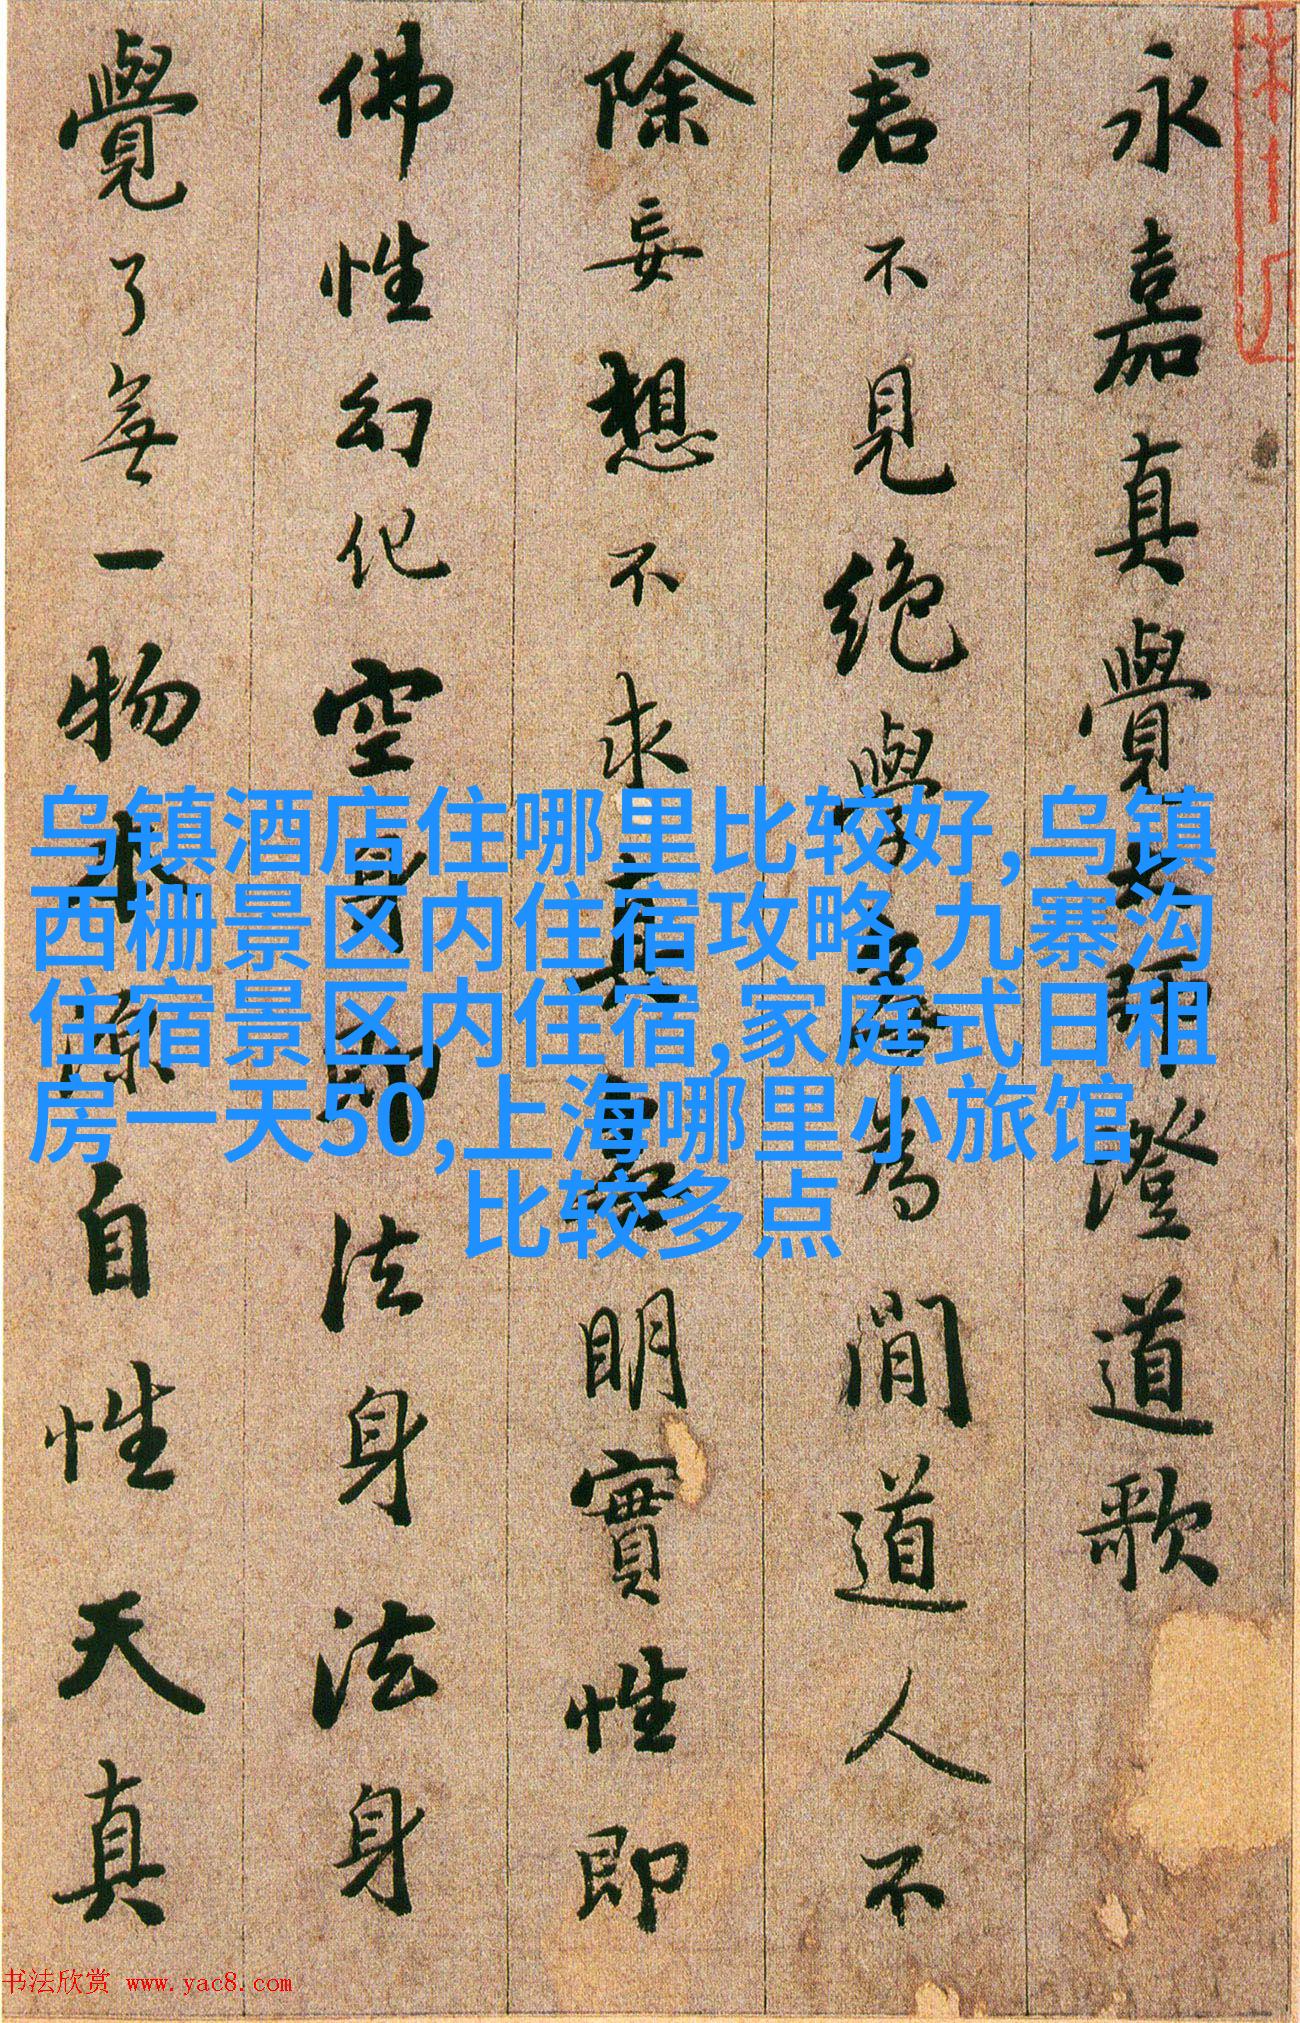 永嘉真覺大師澄道歌
君不見絕學無為閒道人不
除妄想不求真無明實性即
佛性幻化空身即法身法身
覺了無一物本源自性天真
乌镇酒店住哪里比较好,乌镇
西栅景区内住宿攻略,九寨沟
住宿景区内住宿,家庭式日租
房一天50,上海哪里小旅馆
比较多点
书法欣赏 www.yac8.com